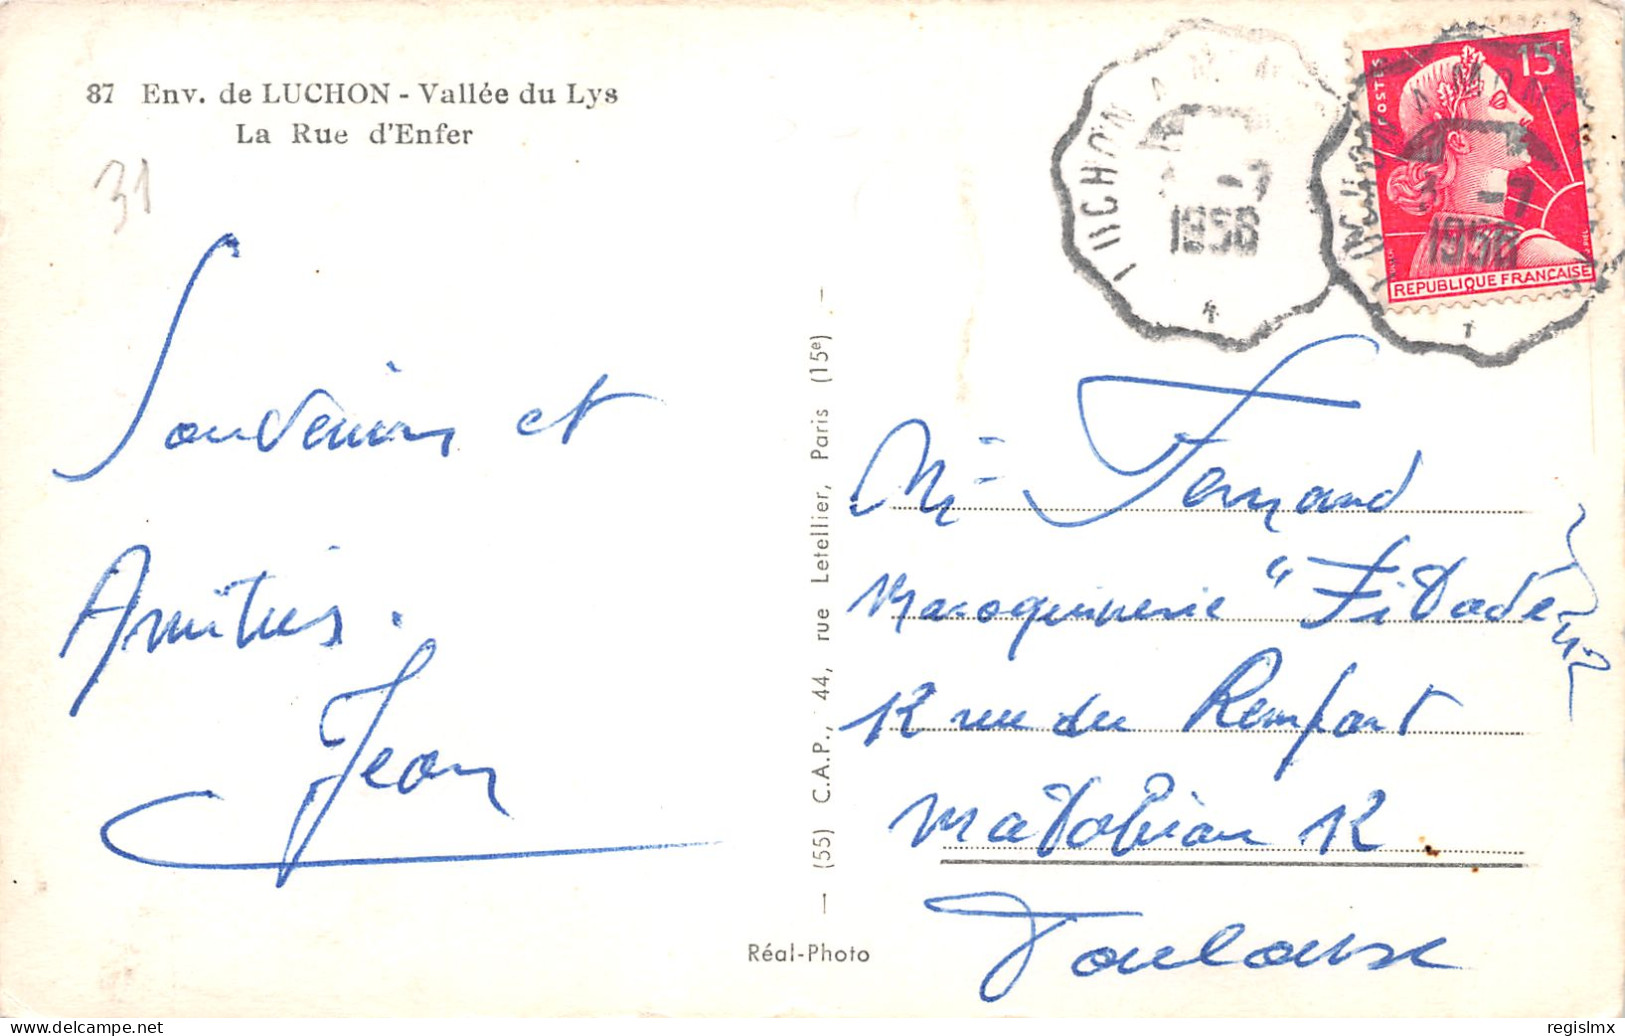 87 Env. de LUCHON - Vallée du Lys
La Rue d'Enfer
31
Souvenirs et
Amitiés.
Jean
(55) C.A.P., 44, rue Letellier, Paris (15e)
Réal-Photo
LUCHON A M
-7
1956
POSTES
15F
REPUBLIQUE FRANÇAISE
LUCHON A MONTREJEAU
3 -7
1956
Mr Fernand
Maroquinerie "
12 rue du Rempart
Matabiau 12
Toulouse
delcampe.net
regislmx